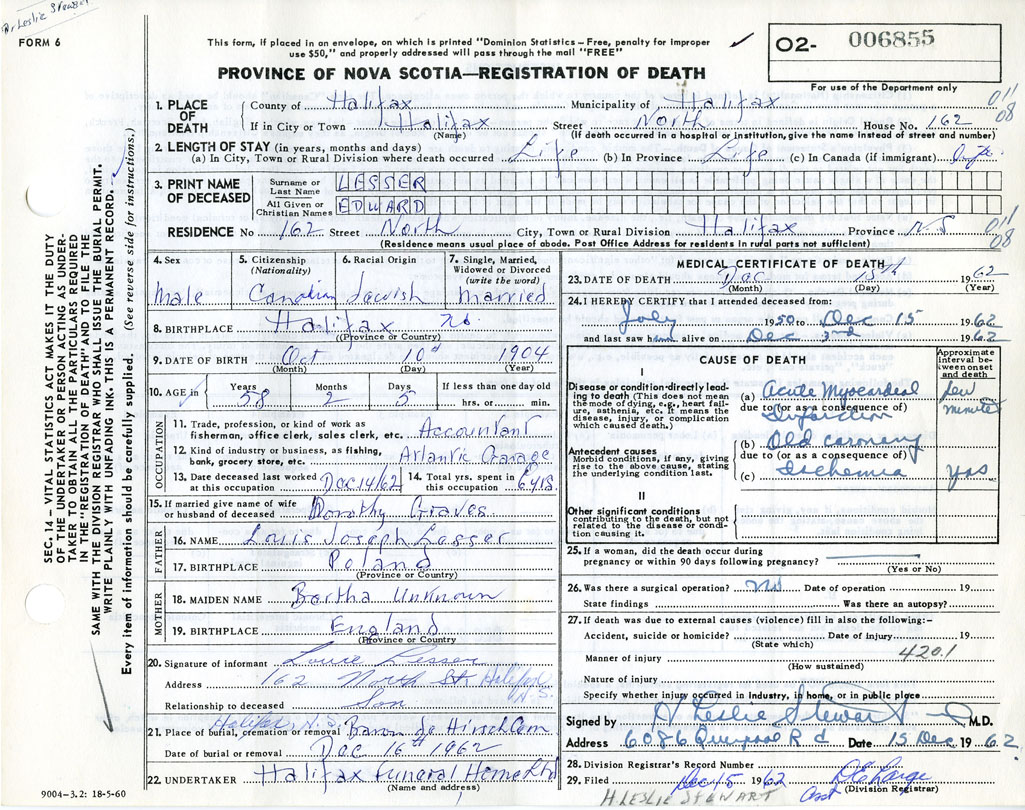 Dr Leslie Stewart
FORM 6
This form, if placed in an envelope, on which is printed "Dominion Statistics – Free, penalty for improper
use $50," and properly addressed will pass through the mail "FREE"
PROVINCE OF NOVA SCOTIA—REGISTRATION OF DEATH
O2- 006855
For use of the Department only
SEC. 14 – VITAL STATISTICS ACT MAKES IT THE DUTY
OF THE UNDERTAKER OR PERSON ACTING AS UNDER-
TAKER TO OBTAIN ALL THE PARTICULARS REQUIRED
IN THE "REGISTRATION OF DEATH" AND TO FILE THE
SAME WITH THE DIVISION REGISTRAR WHO SHALL ISSUE THE BURIAL PERMIT.
WRITE PLAINLY WITH UNFADING INK. THIS IS A PERMANENT RECORD.
Every item of information should be carefully supplied. (See reverse side for instructions.)
1. PLACE OF DEATH
County of Halifax Municipality of Halifax 011
If in City or Town Halifax Street North House No. 162 08
(Name) (If death occurred in a hospital or institution, give the name instead of street and number)
2. LENGTH OF STAY (in years, months and days)
(a) In City, Town or Rural Division where death occurred Life (b) In Province Life (c) In Canada (if immigrant) Life
3. PRINT NAME OF DECEASED
Surname or Last Name LESSER
All Given or Christian Names EDWARD
RESIDENCE No 162 Street North City, Town or Rural Division Halifax Province N S 011 08
(Residence means usual place of abode. Post Office Address for residents in rural parts not sufficient)
4. Sex Male
5. Citizenship (Nationality) Canadian
6. Racial Origin Jewish
7. Single, Married, Widowed or Divorced (write the word) Married
8. BIRTHPLACE Halifax N.S.
(Province or Country)
9. DATE OF BIRTH Oct 10th 1904
(Month) (Day) (Year)
10. AGE in Years 58 Months 2 Days 5 If less than one day old
hrs. or min.
OCCUPATION
11. Trade, profession, or kind of work as
fisherman, office clerk, sales clerk, etc. Accountant
12. Kind of industry or business, as fishing,
bank, grocery store, etc. Atlantic Garage
13. Date deceased last worked at this occupation Dec 14/62 14. Total yrs. spent in this occupation 6 yrs.
15. If married give name of wife
or husband of deceased Dorothy Graves
FATHER
16. NAME Louis Joseph Lesser
17. BIRTHPLACE Poland
(Province or Country)
MOTHER
18. MAIDEN NAME Bertha Unknown
19. BIRTHPLACE England
(Province or Country
20. Signature of informant Louis Lesser
Address 162 North St Halifax N.S.
Relationship to deceased Son
Halifax, N.S.
21. Place of burial, cremation or removal Baron de Hirsch Cem
Date of burial or removal Dec 16th 1962
22. UNDERTAKER Halifax Funeral Home Ltd
(Name and address)
9004–3.2: 18-5-60
MEDICAL CERTIFICATE OF DEATH
23. DATE OF DEATH Dec 15th 1962
(Month) (Day) (Year)
24. I HEREBY CERTIFY that I attended deceased from:
July 1950 to Dec 15 1962
and last saw h alive on Dec 3rd 1962
CAUSE OF DEATH
Approximate interval between onset and death
I
Disease or condition directly lead-
ing to death (This does not mean
the mode of dying, e.g., heart fail-
ure, asthenia, etc. It means the
disease, injury, or complication
which caused death.)
(a) Acute Myocardial few minutes
due to (or as a consequence of)
Infarction
Antecedent causes
Morbid conditions, if any, giving
rise to the above cause, stating
the underlying condition last.
(b) Old coronary
due to (or as a consequence of)
(c) Ischemia yrs
II
Other significant conditions
contributing to the death, but not
related to the disease or condi-
tion causing it.
25. If a woman, did the death occur during
pregnancy or within 90 days following pregnancy?
(Yes or No)
26. Was there a surgical operation? No Date of operation 19
State findings Was there an autopsy?
27. If death was due to external causes (violence) fill in also the following:–
Accident, suicide or homicide? Date of injury 19
(State which)
Manner of injury 420.1
(How sustained)
Nature of injury
Specify whether injury occurred in industry, in home, or in public place
Signed by H Leslie Stewart M.D.
Address 6086 Quinpool Rd Date 15 Dec 1962
28. Division Registrar's Record Number
29. Filed Dec 15 1962
(Division Registrar)
Asst
H. LESLIE STEWART